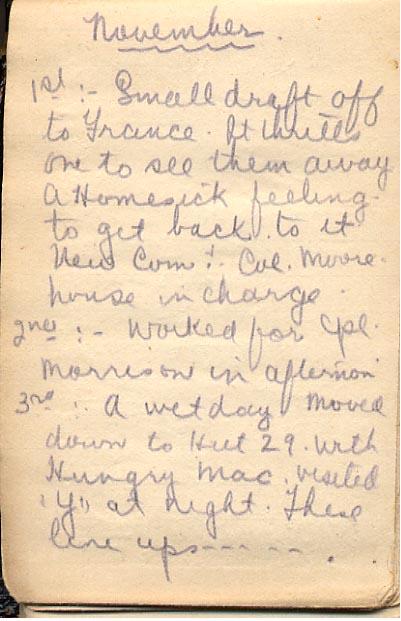 November.
1st :- Small draft off
to France. It thrills
one to see them away
A Homesick feeling
to get back to it
New Comt. Col. Moore-
house in charge.
2nd :- Worked for Cpl.
Morrison in afternoon
3rd :. A wet day Moved
down to Hut 29. with
Hungry Mac. visited
"Y" at night. These
line ups------.